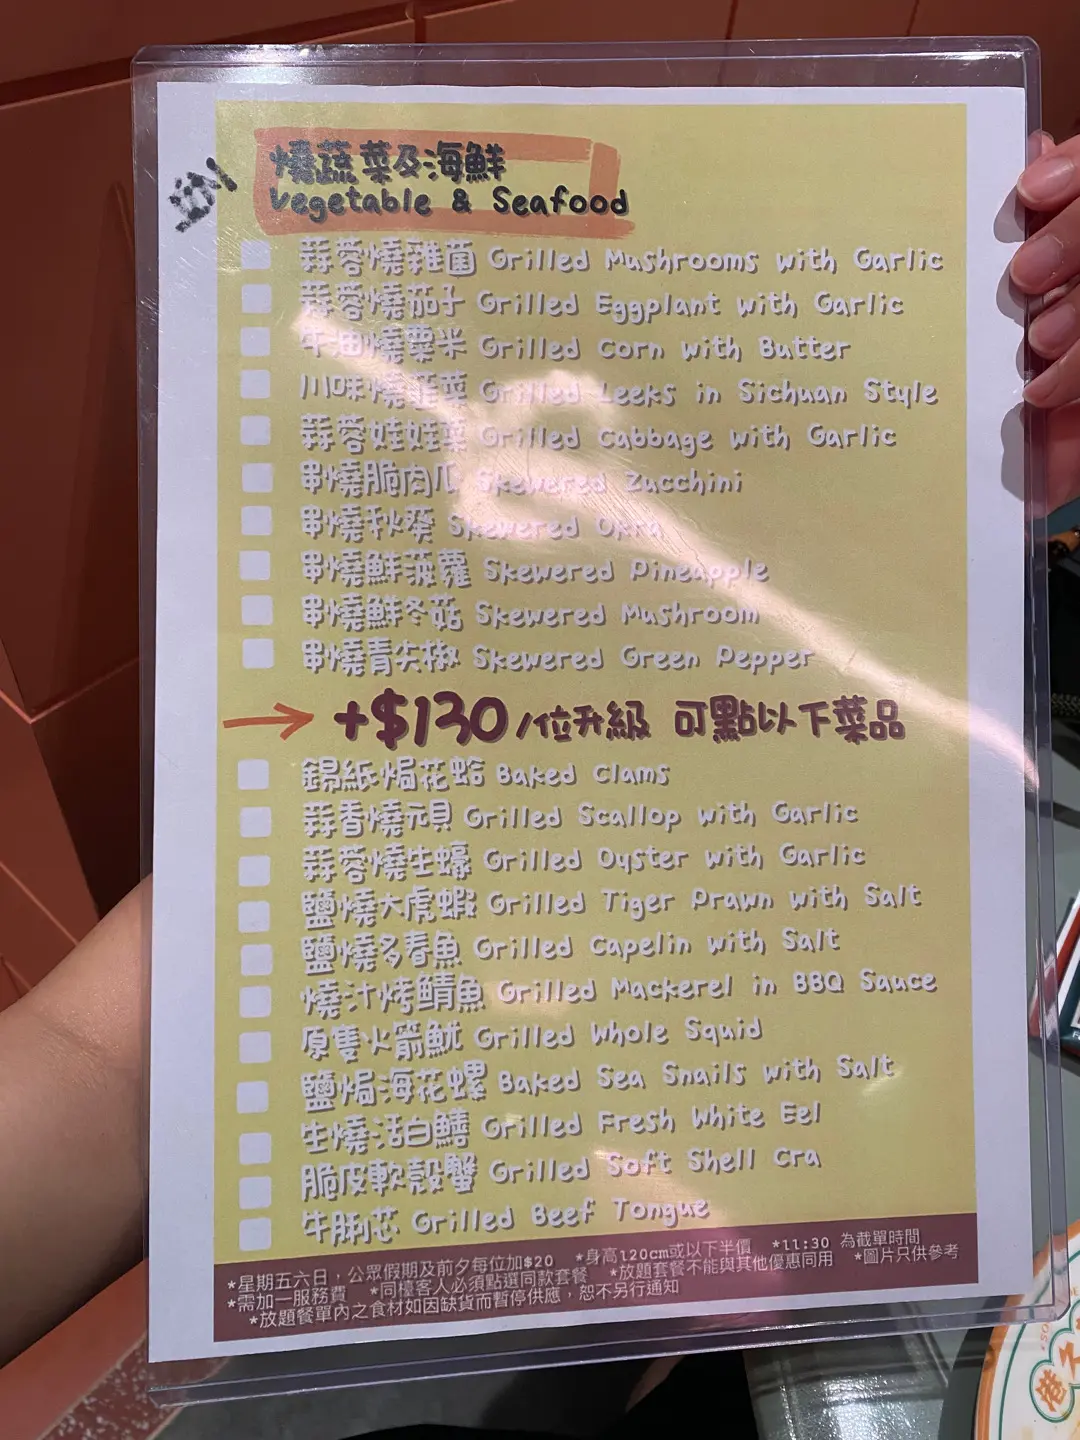 燒蔬菜及海鮮
Vegetable & Seafood
蒜蓉燒雜菌 Grilled Mushrooms with Garlic
蒜蓉燒茄子 Grilled Eggplant with Garlic
牛油燒粟米 Grilled Corn with Butter
川味燒韮菜 Grilled Leeks in Sichuan Style
蒜蓉娃娃菜 Grilled Cabbage with Garlic
串燒脆肉瓜 Skewered Zucchini
串燒秋葵 Skewered Okra
串燒鮮菠蘿 Skewered Pineapple
串燒鮮冬菇 Skewered Mushroom
串燒青尖椒 Skewered Green Pepper
+$130/位升級 可點以下菜品
錫紙焗花蛤 Baked Clams
蒜香燒元貝 Grilled Scallop with Garlic
蒜蓉燒生蠔 Grilled Oyster with Garlic
鹽燒大虎蝦 Grilled Tiger Prawn with Salt
鹽燒多春魚 Grilled Capelin with Salt
燒汁烤鯖魚 Grilled Mackerel in BBQ Sauce
原隻火箭魷 Grilled Whole Squid
鹽焗海花螺 Baked Sea Snails with Salt
生燒活白鱔 Grilled Fresh White Eel
脆皮軟殼蟹 Grilled Soft Shell Cra
牛脷芯 Grilled Beef Tongue
*星期五六日，公眾假期及前夕每位加$20 *身高120cm或以下半價 *11:30 為截單時間
*需加一服務費 *同檯客人必須點選同款套餐 *放題套餐不能與其他優惠同用 *圖片只供參考
*放題餐單內之食材如因缺貨而暫停供應，恕不另行通知